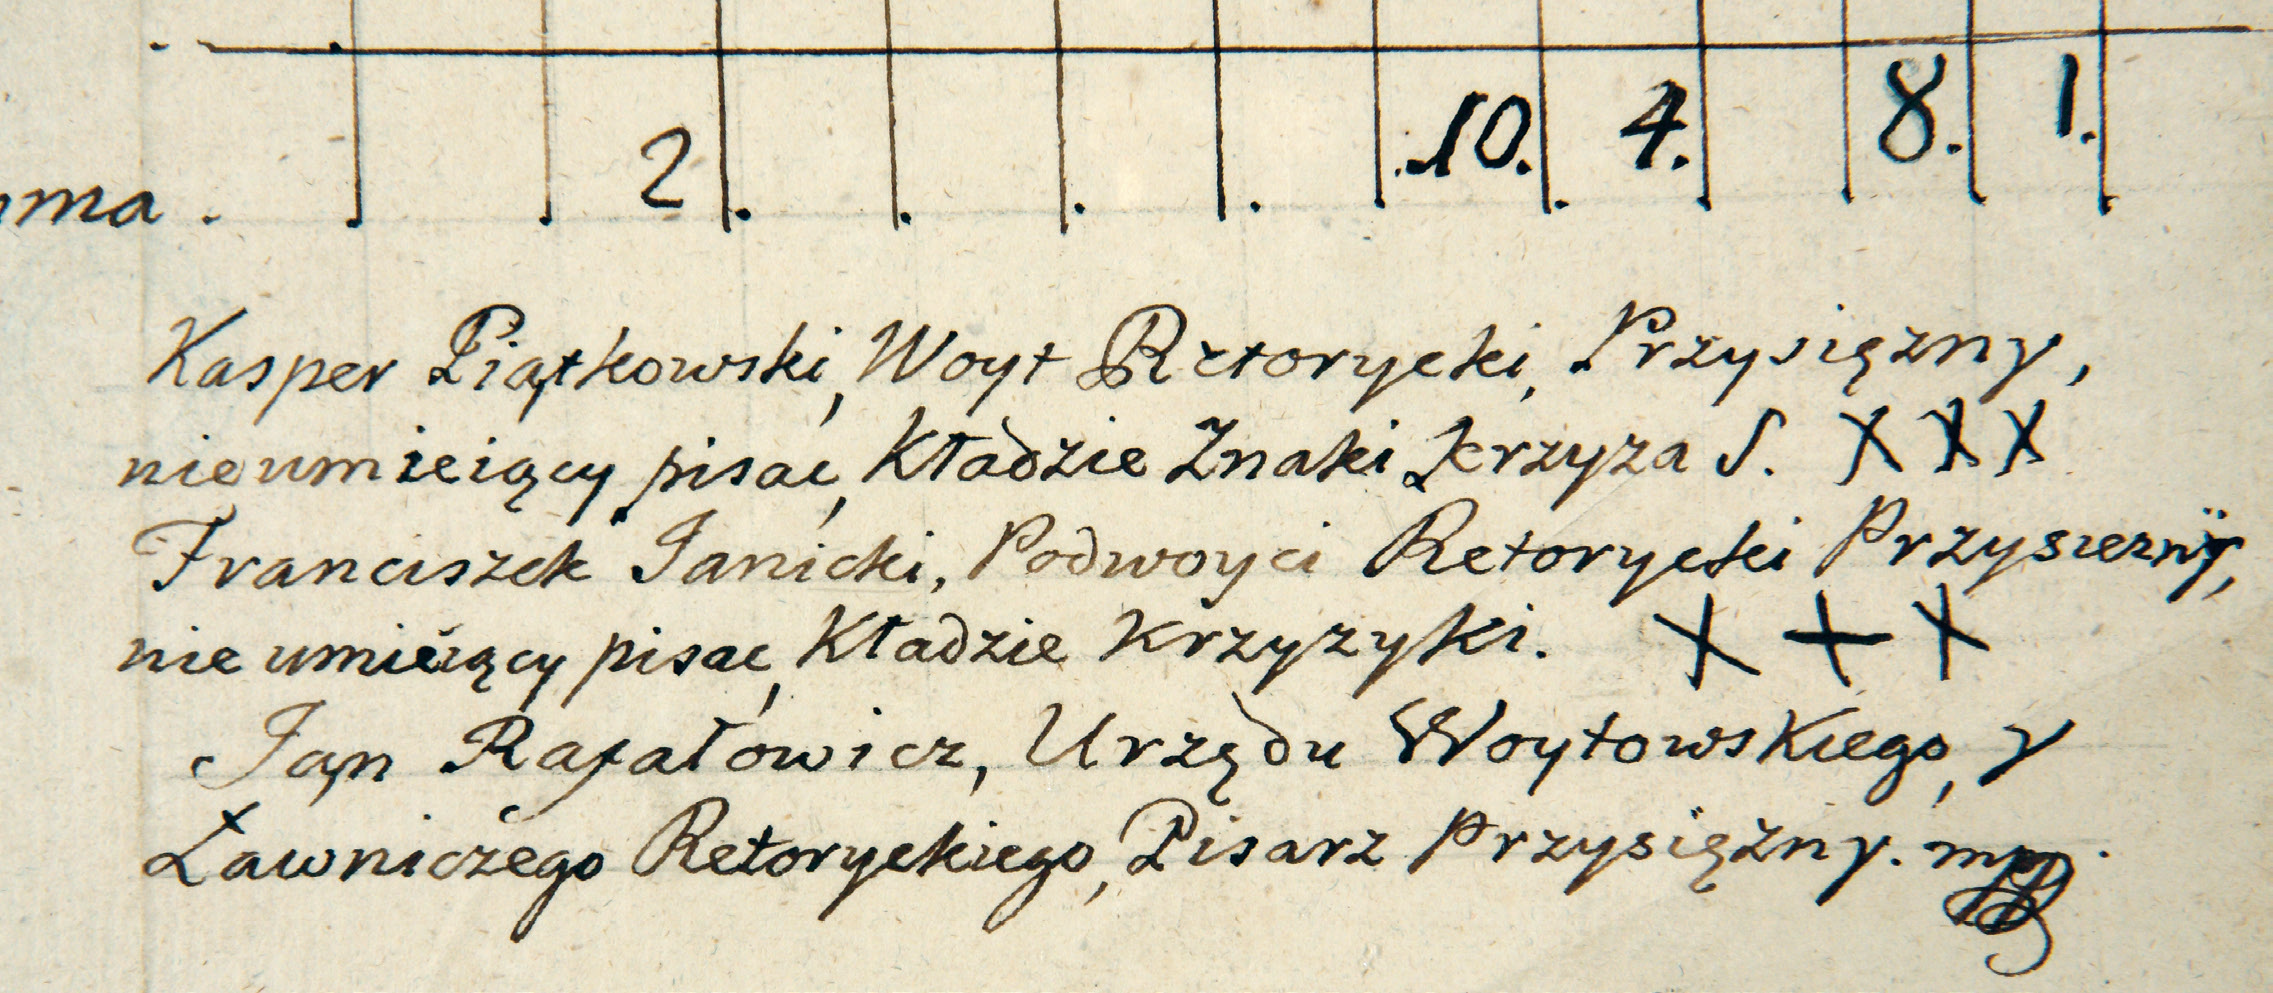 2 . 10. 4. 8. 1.
ma .
Kasper Piątkowski, Woyt Retorycki, Przysięzny,
nieumieiący pisac, Kładzie Znaki krzyza S. X X X
Franciszek Janicki, Podwoyci Retorycki Przysiezny,
nie umieiący pisac, Kładzie Krzyzyki. X + X
Jan Rafałowicz, Urzędu Woytowskiego, y
Ławniczego Retoryckiego, Pisarz Przysiężny. mpp